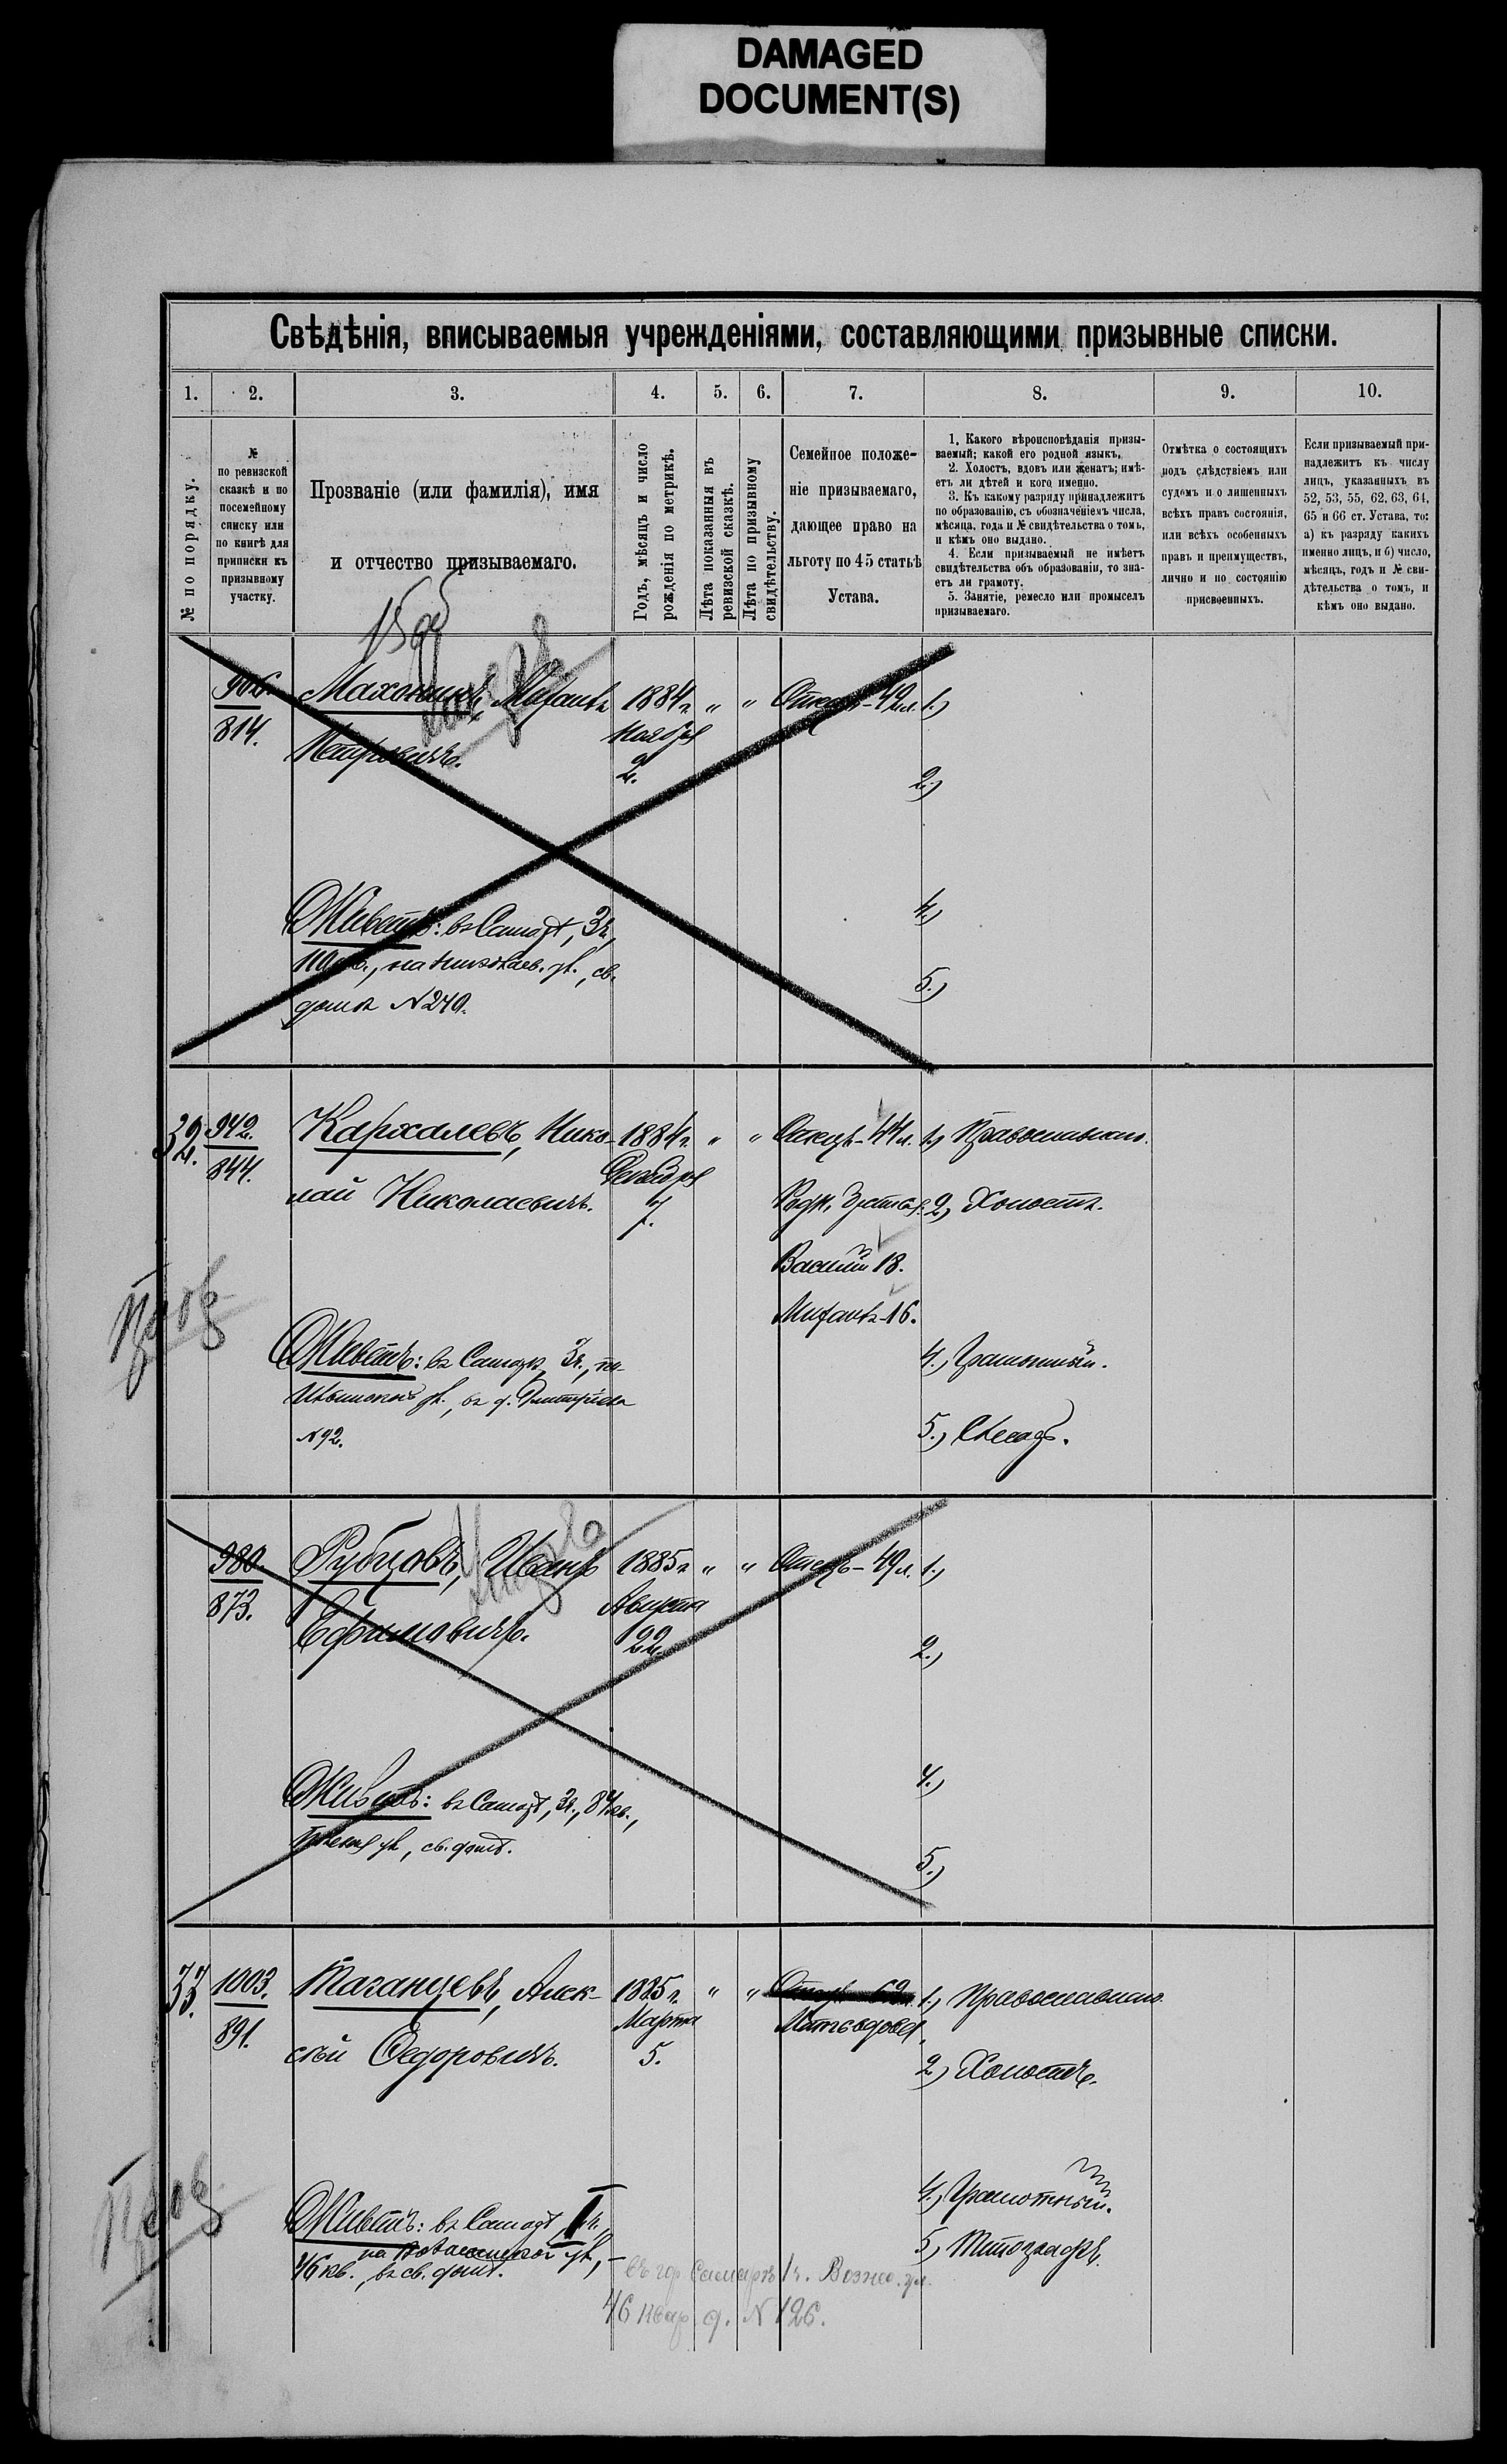 DAMAGED
DOCUMENT(S)
Свѣдѣнія, вписываемыя учрежденіями, составляющими призывные списки.
1. 2. 3. 4. 5. 6. 7. 8. 9. 10.
№ по порядку.
№
по ревизской
сказкѣ и по
посемейному
списку или
по книгѣ для
приписки къ
призывному
участку.
Прозваніе (или фамилія), имя
и отчество призываемаго.
Годъ, мѣсяцъ и число
рожденія по метрикѣ.
Лѣта показанныя въ
ревизской сказкѣ.
Лѣта по призывному
свидѣтельству.
Семейное положе-
ніе призываемаго,
дающее право на
льготу по 45 статьѣ
Устава.
1. Какого вѣроисповѣданія призы-
ваемый; какой его родной языкъ.
2. Холостъ, вдовъ или женатъ; имѣ-
етъ ли дѣтей и кого именно.
3. Къ какому разряду принадлежитъ
по образованію, съ обозначеніемъ числа,
мѣсяца, года и № свидѣтельства о томъ,
и кѣмъ оно выдано.
4. Если призываемый не имѣетъ
свидѣтельства объ образованіи, то зна-
етъ ли грамоту.
5. Занятіе, ремесло или промыселъ
призываемаго.
Отмѣтка о состоящихъ
подъ слѣдствіемъ или
судомъ и о лишенныхъ
всѣхъ правъ состоянія,
или всѣхъ особенныхъ
правъ и преимуществъ,
лично и по состоянію
присвоенныхъ.
Если призываемый при-
надлежитъ къ числу
лицъ, указанныхъ въ
52, 53, 55, 62, 63, 64,
65 и 66 ст. Устава, то:
а) къ разряду какихъ
именно лицъ, и б) число,
мѣсяцъ, годъ и № сви-
дѣтельства о томъ, и
кѣмъ оно выдано.
906. Михаилъ 1884 г. " " Отецъ-49 л. 1.)
814. Петровичъ. Ноября
2.
2.)
Живетъ: въ Самарѣ, 3 ч.,
110 кв., на Николаев. ул., св.
домъ N 240.
4.)
5.)
32. 942. Кархалевъ, Нико- 1884 г. " " Отецъ-44 л. 1.) Православнаго.
844. лай Николаевичъ. Декабря
7.
2.) Холостъ.
Василій 18.
Михаилъ-16.
Живетъ: въ Самарѣ, 3 ч., по
Ильинской ул., въ д. Дмитріева
N 92.
4.) Грамотный.
5.) Слесарь.
980. Рубцовъ, Иванъ 1885 г. " " Отецъ-49 л. 1.)
873. Ефимовичъ. Августа
22.
2.)
Живетъ: въ Самарѣ, 3 ч., 84 кв.,
ул., св. домъ.
4.)
5.)
33. 1003. Таганцевъ, Алек- 1885 г. " " Отецъ 62 л. 1.) Православнаго.
891. сѣй Ѳедоровичъ. Марта Мать вдова
5.
2.) Холостъ.
4.) Грамотный.
5.) Типографъ.
Живетъ: въ Самарѣ, I ч.,
46 кв., въ св. домѣ.
въ гор. Самарѣ 1 ч. Вознес. ул.
46 квар. д. N 126.